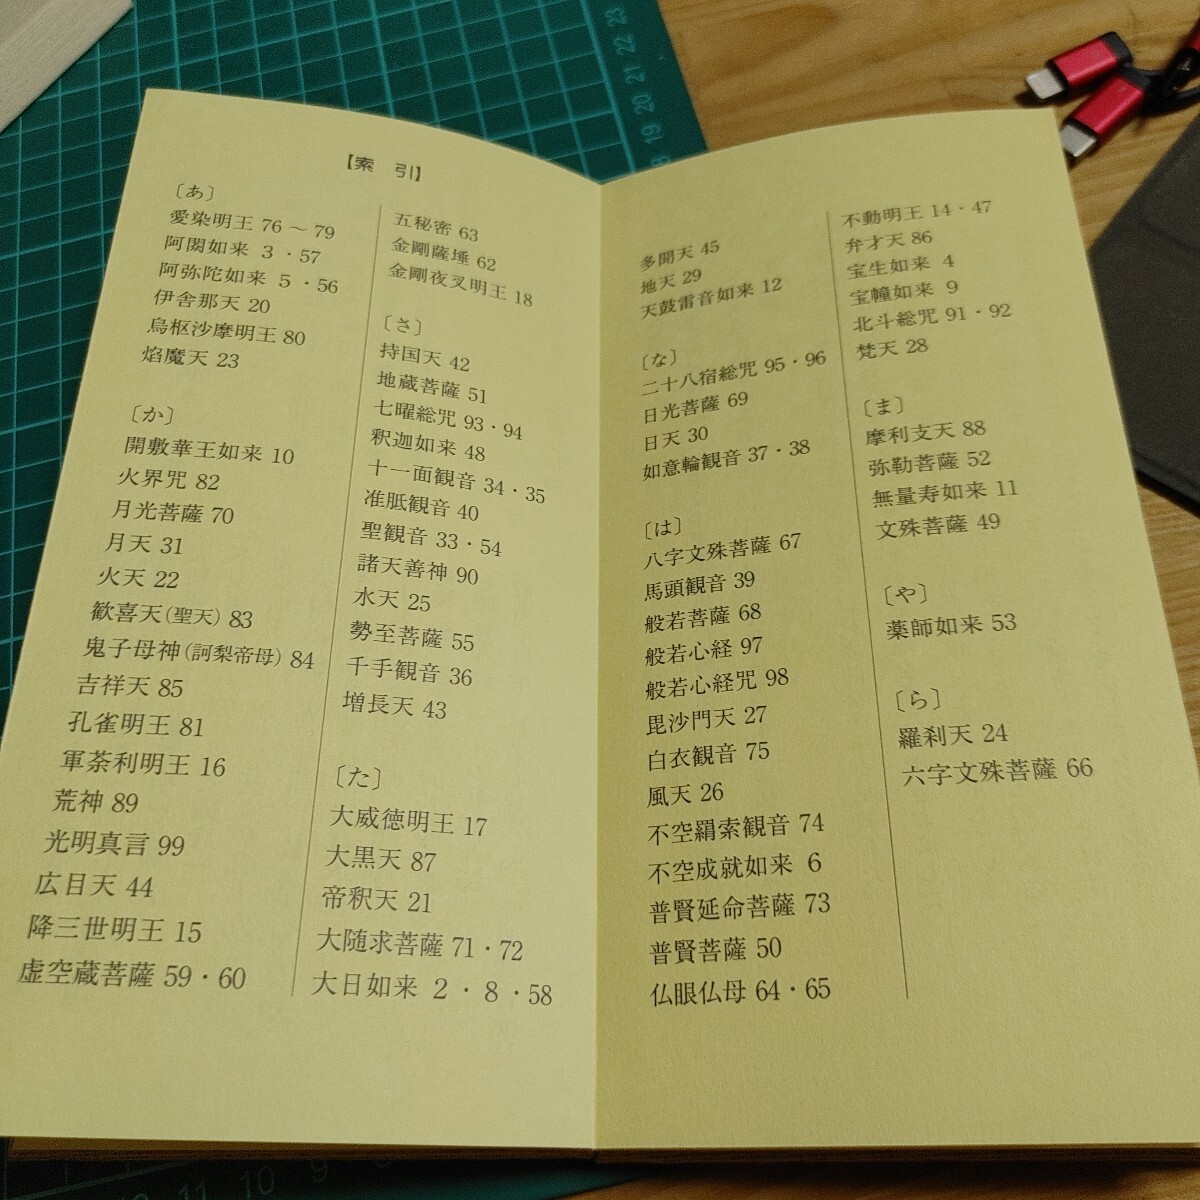 【索　引】
〔あ〕
愛染明王 76～79
阿閦如来 3・57
阿弥陀如来 5・56
伊舎那天 20
烏枢沙摩明王 80
焔魔天 23
〔か〕
開敷華王如来 10
火界咒 82
月光菩薩 70
月天 31
火天 22
歓喜天(聖天) 83
鬼子母神(訶梨帝母) 84
吉祥天 85
孔雀明王 81
軍荼利明王 16
荒神 89
光明真言 99
広目天 44
降三世明王 15
虚空蔵菩薩 59・60
五秘密 63
金剛薩埵 62
金剛夜叉明王 18
〔さ〕
持国天 42
地蔵菩薩 51
七曜総咒 93・94
釈迦如来 48
十一面観音 34・35
准胝観音 40
聖観音 33・54
諸天善神 90
水天 25
勢至菩薩 55
千手観音 36
増長天 43
〔た〕
大威徳明王 17
大黒天 87
帝釈天 21
大随求菩薩 71・72
大日如来 2・8・58
多聞天 45
地天 29
天鼓雷音如来 12
〔な〕
二十八宿総咒 95・96
日光菩薩 69
日天 30
如意輪観音 37・38
〔は〕
八字文殊菩薩 67
馬頭観音 39
般若菩薩 68
般若心経 97
般若心経咒 98
毘沙門天 27
白衣観音 75
風天 26
不空羂索観音 74
不空成就如来 6
普賢延命菩薩 73
普賢菩薩 50
仏眼仏母 64・65
不動明王 14・47
弁才天 86
宝生如来 4
宝幢如来 9
北斗総咒 91・92
梵天 28
〔ま〕
摩利支天 88
弥勒菩薩 52
無量寿如来 11
文殊菩薩 49
〔や〕
薬師如来 53
〔ら〕
羅刹天 24
六字文殊菩薩 66
23
22
21
20
19
18
11
10
9
8